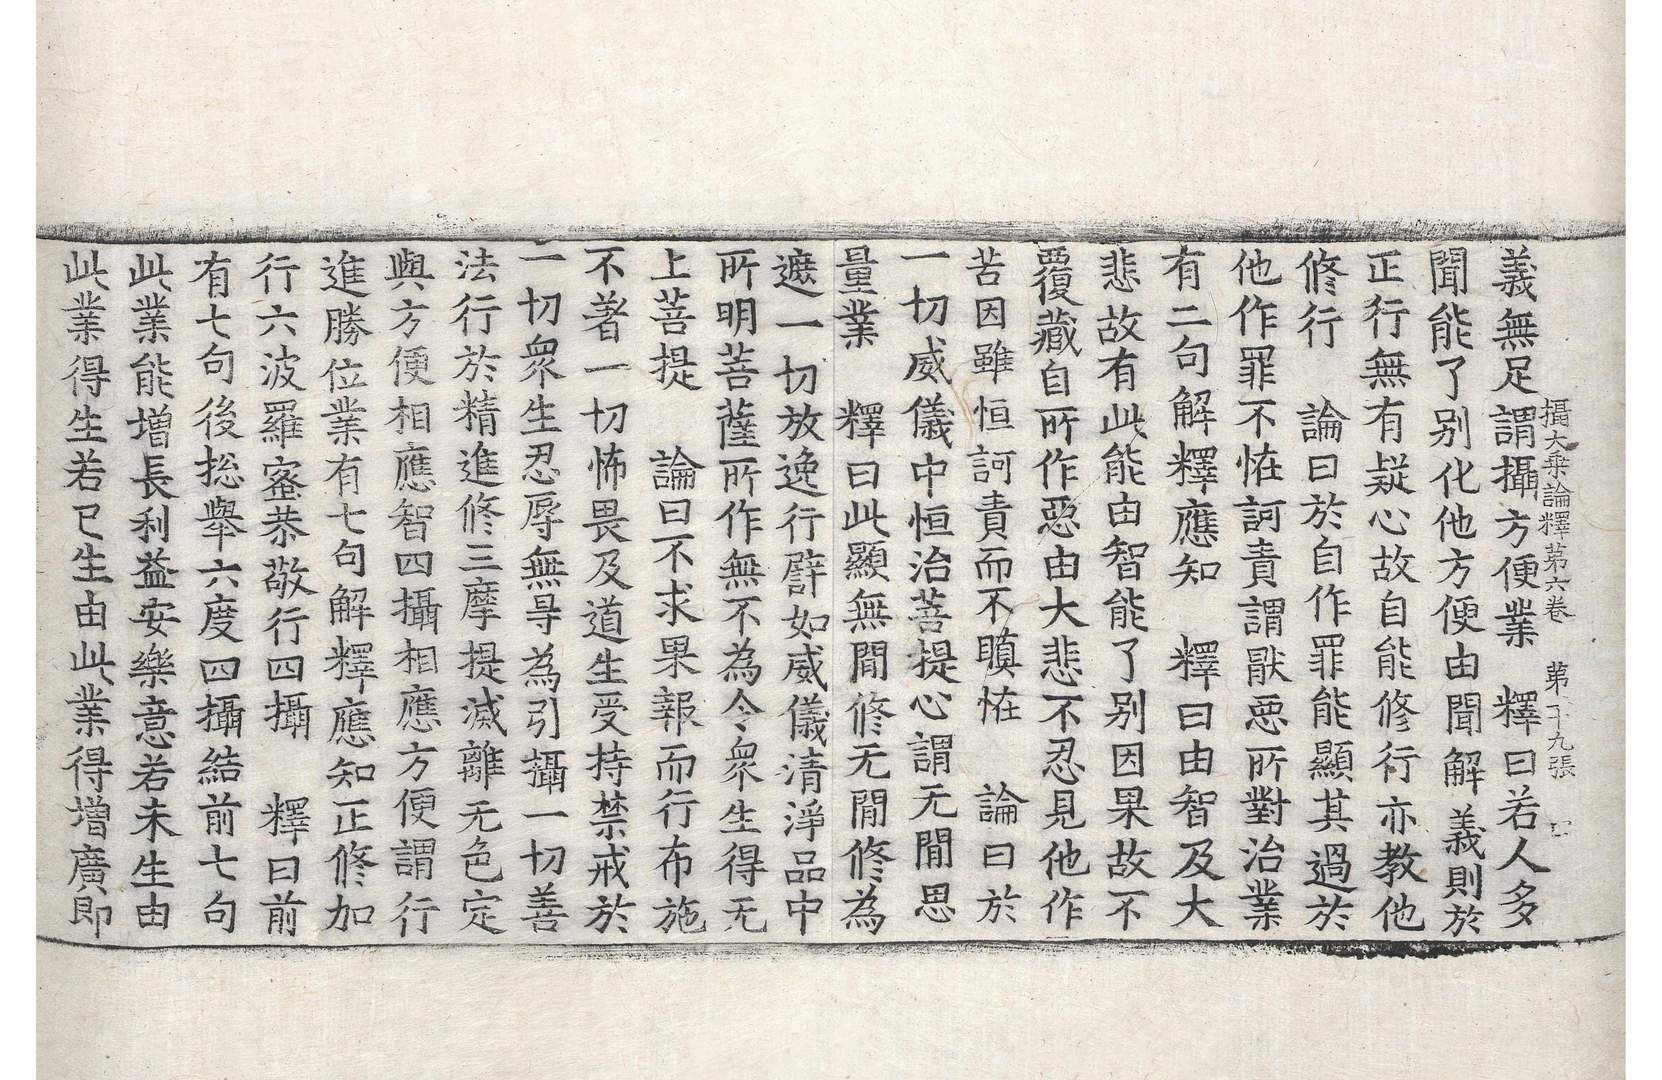 攝大乘論釋第六卷　第十九張
義無足謂攝方便業　釋曰若人多
聞能了别化他方便由聞解義則於
正行無有疑心故自能修行亦教他
修行　論曰於自作罪能顯其過於
他作罪不恠訶責謂厭惡所對治業
有二句解釋應知　釋曰由智及大
悲故有此能由智能了别因果故不
覆藏自所作惡由大悲不忍見他作
苦因雖恒訶責而不瞋恠　論曰於
一切威儀中恒治菩提心謂无間思
量業　釋曰此顯無間修无間修為
遮一切放逸行譬如威儀清淨品中
所明菩薩所作無不為令衆生得无
上菩提　論曰不求果報而行布施
不著一切怖畏及道生受持禁戒於
一切衆生忍辱無㝵為引攝一切善
法行於精進修三摩提滅離无色定
與方便相應智四攝相應方便謂行
進勝位業有七句解釋應知正修加
行六波羅蜜恭敬行四攝　釋曰前
有七句後捴舉六度四攝結前七句
此業能增長利益安樂意若未生由
此業得生若已生由此業得增廣即